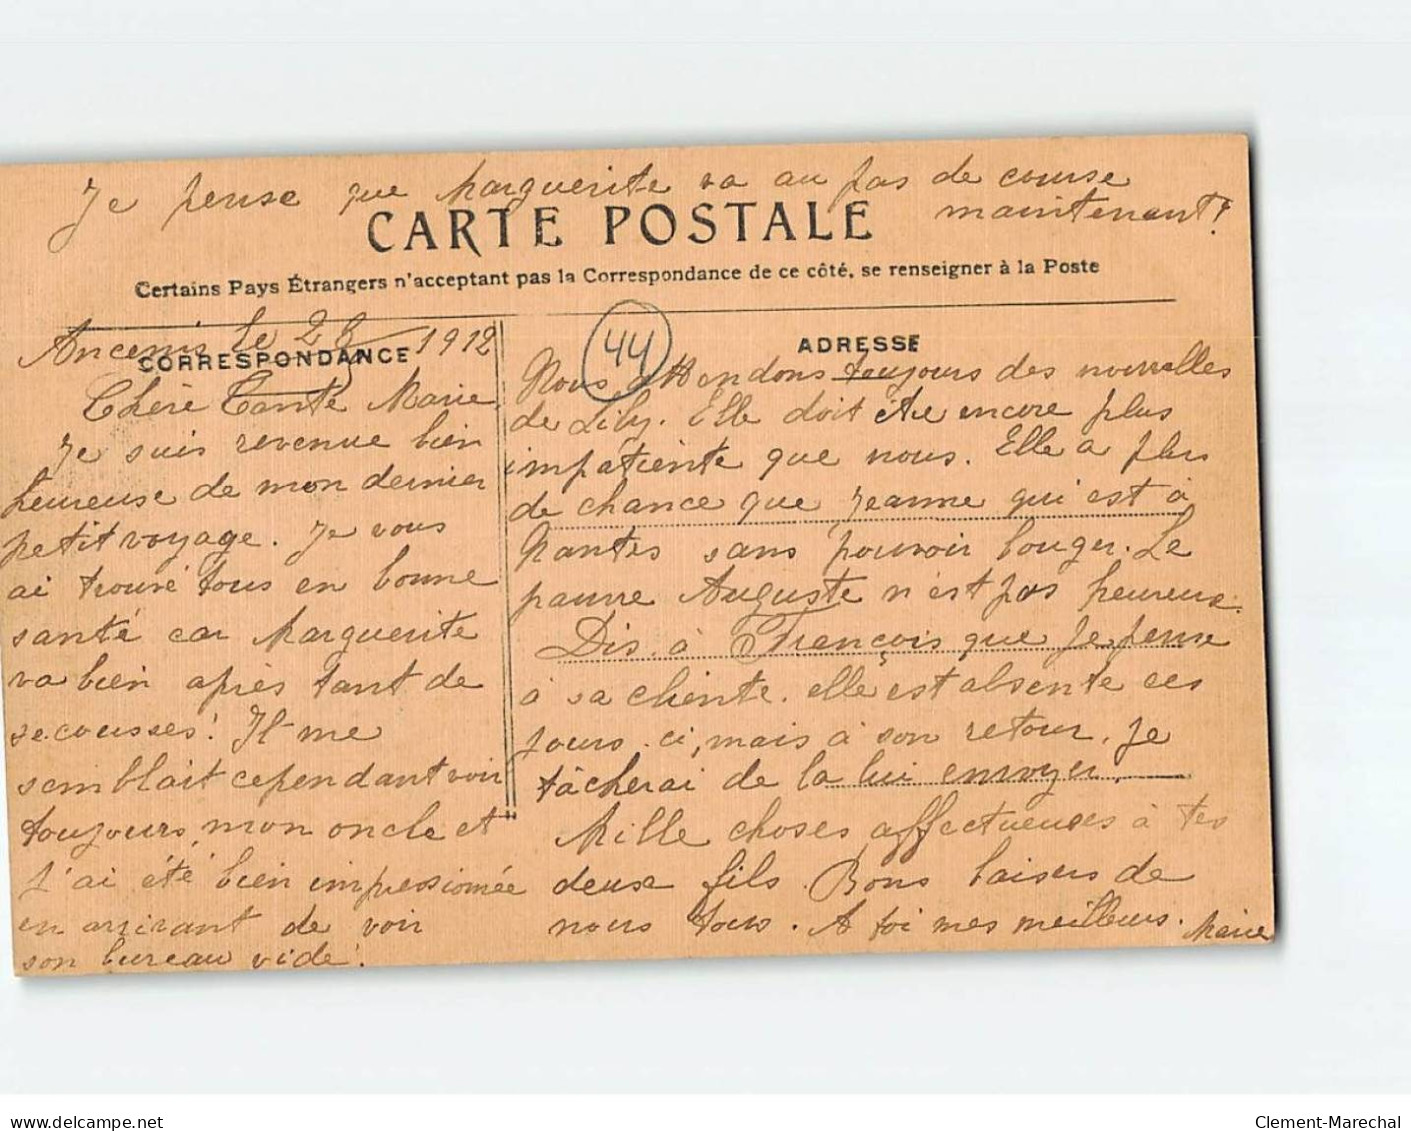 Je pense que Marguerite va au pas de course
maintenant!
CARTE POSTALE
Certains Pays Étrangers n'acceptant pas la Correspondance de ce côté, se renseigner à la Poste
Ancenis le 1912
CORRESPONDANCE
Chère Tante Marie,
Je suis revenue bien
heureuse de mon dernier
petit voyage. Je vous
ai trouvé tous en bonne
santé car Marguerite
va bien après tant de
secousses! Il me
semblait cependant voir
toujours mon oncle et
j'ai été bien impressionnée
en arrivant de voir
son bureau vide!
44
ADRESSE
Nous attendons toujours des nouvelles
de Lily. Elle doit être encore plus
impatiente que nous. Elle a plus
de chance que Jeanne qui est à
Nantes sans pouvoir bouger. Le
pauvre Auguste n'est pas heureux.
Dis à François que je pense
à sa cliente. elle est absente ces
jours-ci, mais à son retour, je
tâcherai de la lui envoyer.
Mille choses affectueuses à tes
deux fils. Bons baisers de
nous tous. A toi mes meilleurs. Marie
Clement-Marechal
www.delcampe.net